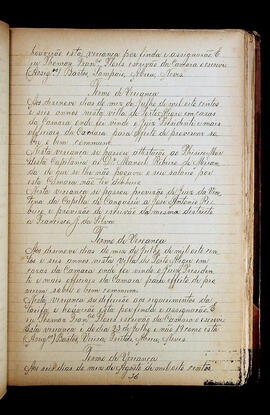 houverão esta vereança por finda e assignarão E
eu Thomaz Franco Flores escrivão da Camara o escrevi
(Assigos) Bastos, Sampaio, Abreu, Alves
Termo de Vereança
Aos desenove dias do mez de Julho de mil oito centos
e seis annos nesta villa de Porto Alegre em casas
da Camara onde foi vindo o Juiz Presidente e mais
officiaes da Camara para effeito de proverem so
bre o bem commum
Nesta vereança se passou attestação ao
desta Capitania ao Dr Manoel Ribeiro de Miran
da de que se lhe não pagava o seu salario por
esta Camara não ter dinheiro
Nesta vereança se passou provisão de Juiz da Vin
tena da Capella de Cangussú a José Antonio Ri
beiro e provisão de escrivão da mesma districto
a Francisco J. da Silva
Termo de Vereança
Aos desenove dias do mez de Julho de mil oito cen
tos e seis annos nesta Villa de Porto Alegre em
casas da Camara onde foi vindo o Juiz Presiden
te e mais officiaes da Camara para effeito de pro
verem sobre o bem commum
Nesta vereança se diffirio aos requerimentos das
partes, e houverão esta por finda e assignarão E
eu Thomaz Franco Flores escrivão da Camara o escrevi
Esta vereança é do dia 23 de Julho e não 19 como está
(Assigos) Bastos, Abreu, Alves
Termo de Vereança
Aos seis dias do mez de Agosto de mil oito centos
36